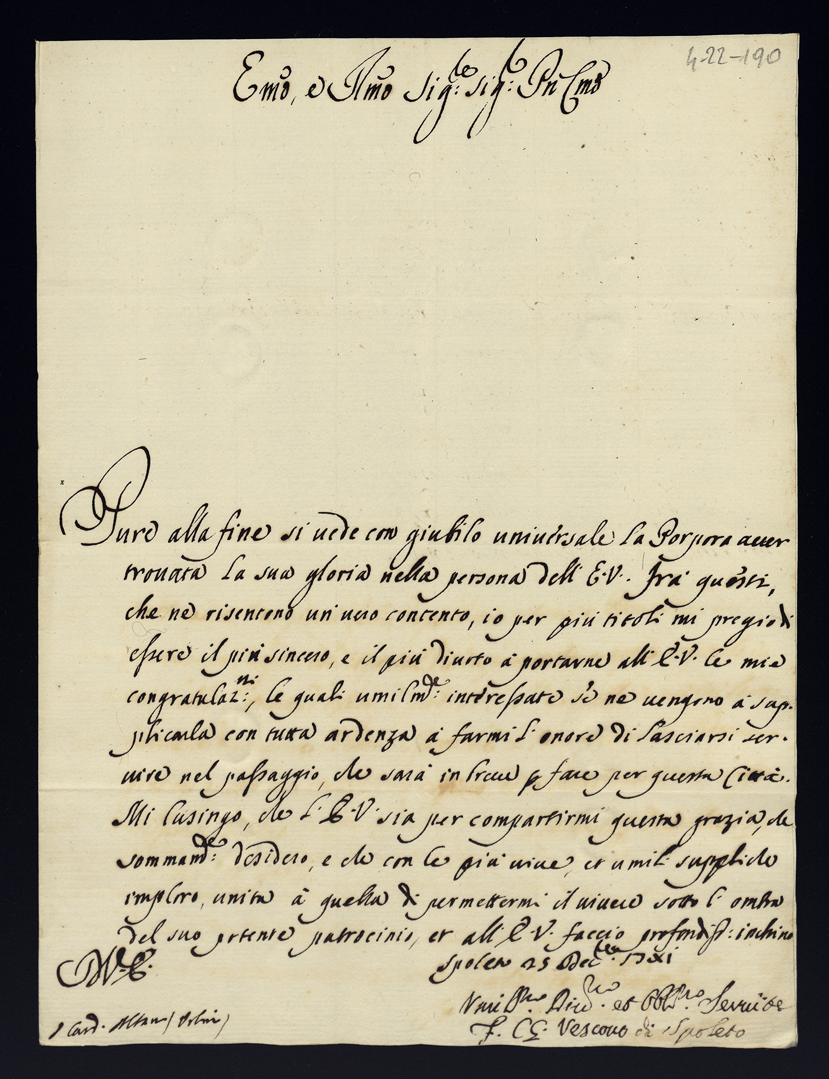 4-22-190
Emo, e Rmo Sig:re Sig:re Pn Cmo
Pure alla fine si vede con giubilo universale la Porpora aver
trovata la sua gloria nella persona dell' E.V. Frà questi,
che ne risentono un vero contento, io per più titoli mi pregio di
essere il più sincero, e il più divoto à portarne all' E.V. le mie
congratulaz:ni, le quali umilm:te interessate se ne vengono à sup-
plicarla con tutta ardenza à farmi l'onore di lasciarsi ser-
vire nel passaggio, che sarà in breve p fare per questa Città.
Mi lusingo, che l'E.V. sia per compartirmi questa grazia, che
sommam:te desidero, e che con le più vive, et umili suppliche
imploro, unita à quella di permettermi il vivere sotto l'ombra
del suo potente patrocinio, et all' E.V. faccio profondiss: inchino
Spoleto 25 Dec:bre
V. E.
Umil:mo Div:mo et Obbl:mo Servit:re
Vescovo di Spoleto
Card. Albani (Urbin)